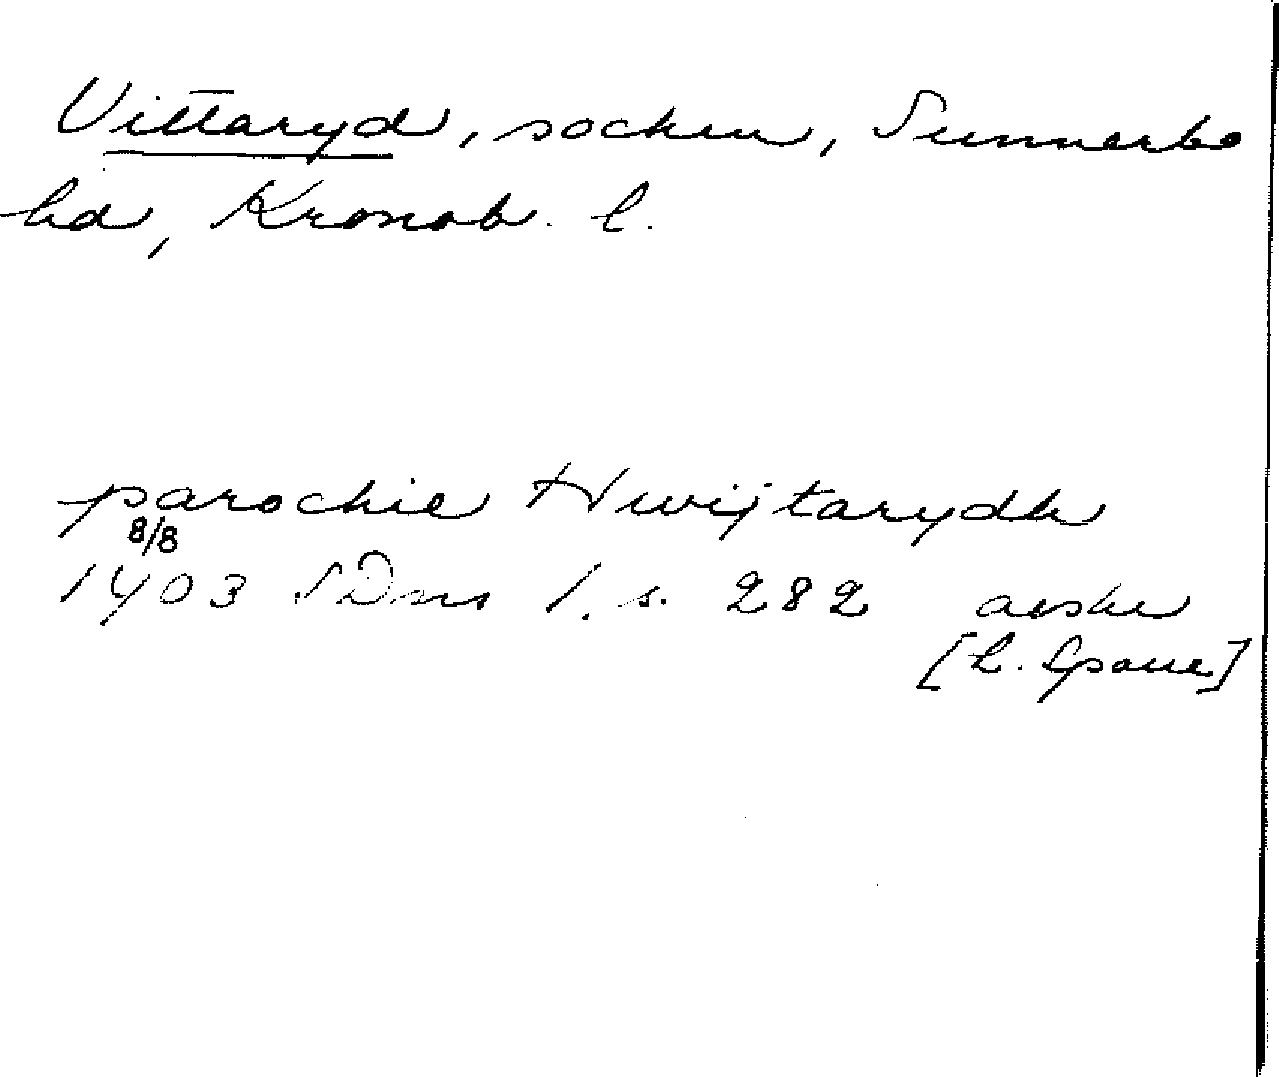 Vittaryd, socken, Sunnerbo
hd, Kronob. l.
parochie Hwijtarydh
8/8
1403 SDns 1. s. 282 avskr
[L. Spaue]